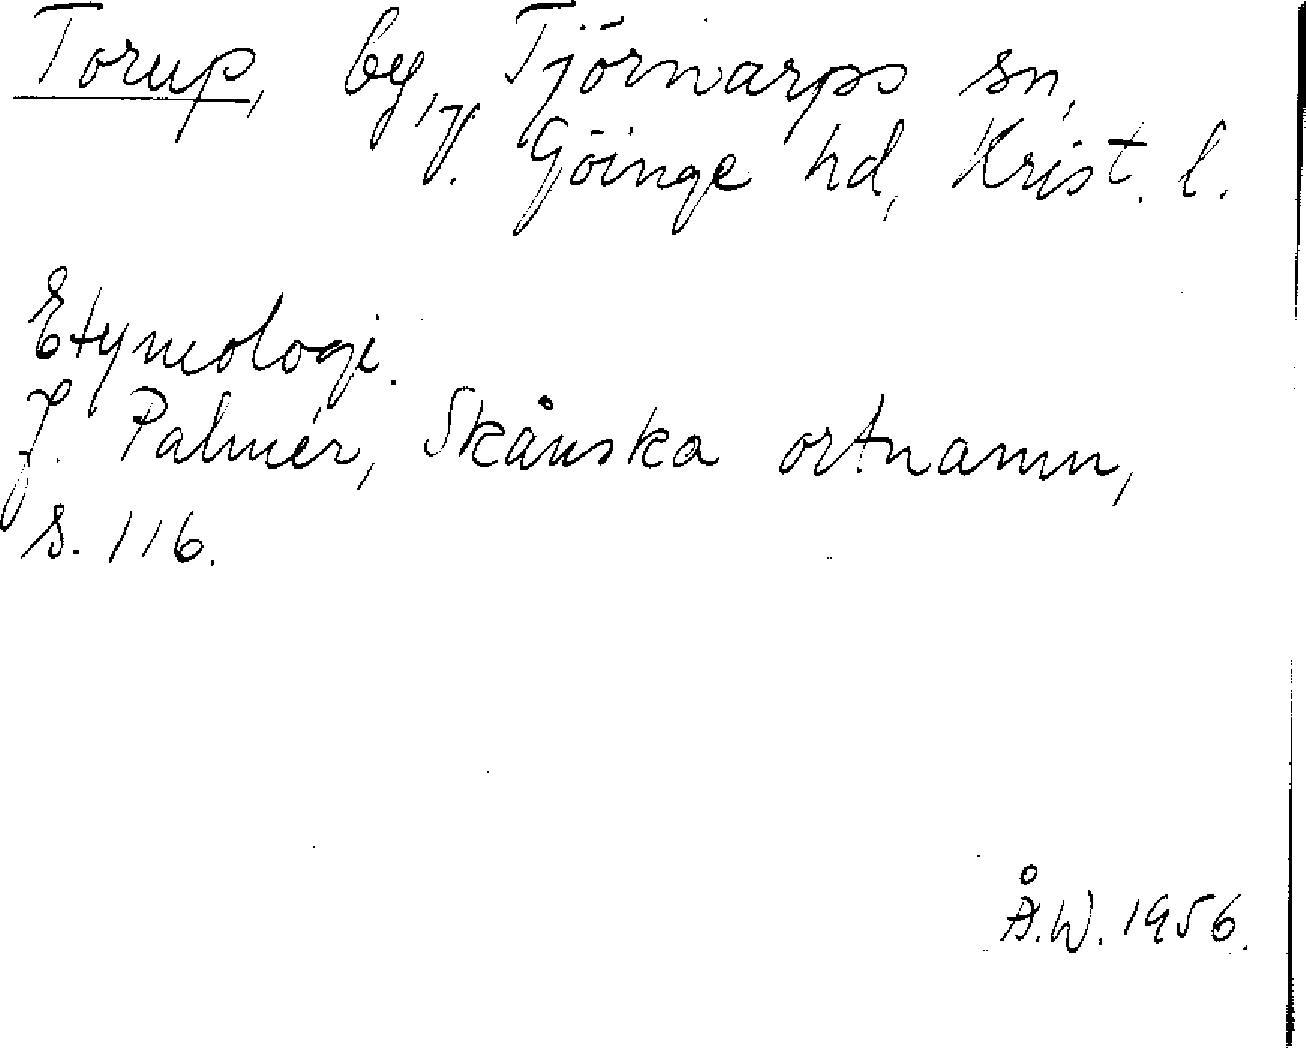 Torup, by, Tjörnarps sn,
V. Göinge hd, Krist. l.
Etymologi.
J. Palmér, Skånska ortnamn,
s. 116.
Å.W. 1956.